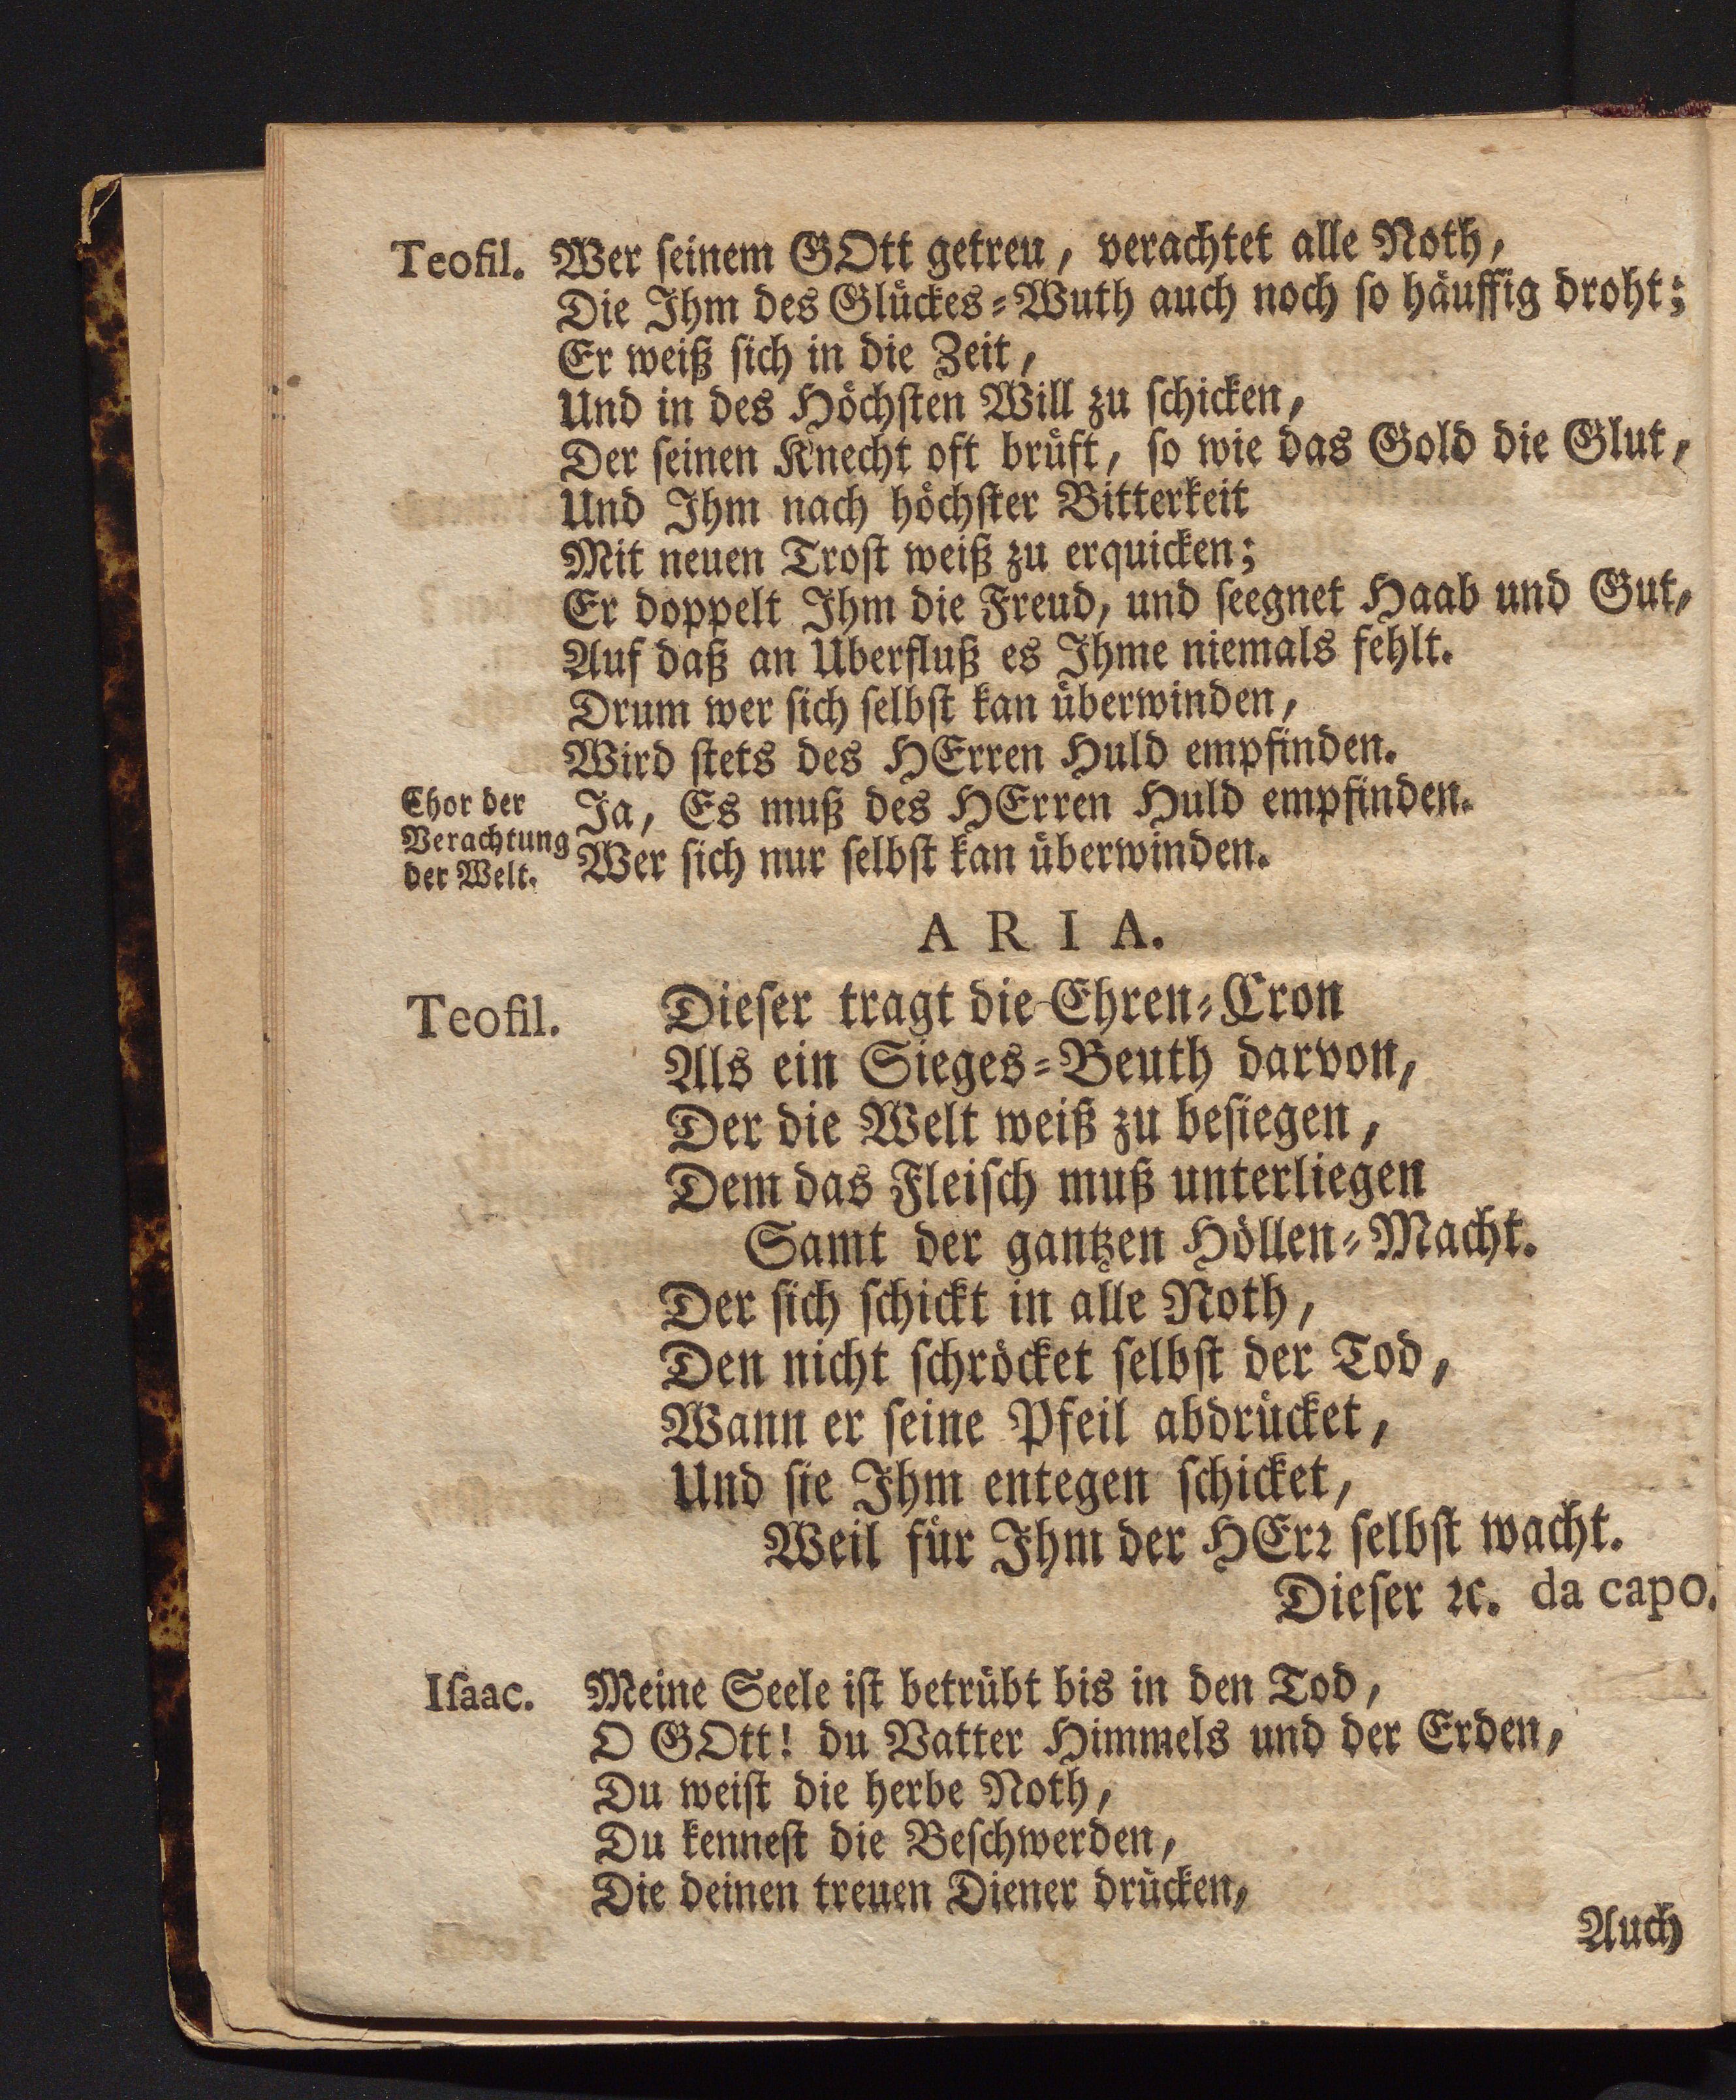 Teofil. Wer ſeinem GOtt getreu, verachtet alle Noth,
Die Ihm des Gluͤckes-Wuth auch noch ſo haͤuffig droht;
Er weiß ſich in die Zeit,
Und in des Hoͤchſten Will zu ſchicken,
Der ſeinen Knecht oft bruͤft, ſo wie das Gold die Glut,
Und Ihm nach hoͤchſter Bitterkeit
Mit neuen Troſt weiß zu erquicken;
Er doppelt Ihm die Freud, und ſeegnet Haab und Gut,
Auf daß an Uberfluß es Ihme niemals fehlt.
Drum wer ſich ſelbſt kan uͤberwinden,
Wird ſtets des HErren Huld empfinden.
Chor der
Verachtung
der Welt.
Ja, Es muß des HErren Huld empfinden.
Wer ſich nur ſelbſt kan uͤberwinden.
A R I A.
Teofil. Dieſer tragt die Ehren-Cron
Als ein Sieges-Beuth darvon,
Der die Welt weiß zu beſiegen,
Dem das Fleiſch muß unterliegen
Samt der gantzen Hoͤllen-Macht.
Der ſich ſchickt in alle Noth,
Den nicht ſchroͤcket ſelbſt der Tod,
Wann er ſeine Pfeil abdruͤcket,
Und ſie Ihm entegen ſchicket,
Weil fuͤr Ihm der HErꝛ ſelbſt wacht.
Dieſer ꝛc. da capo.
Iſaac. Meine Seele iſt betruͤbt bis in den Tod,
O GOtt! du Vatter Himmels und der Erden,
Du weiſt die herbe Noth,
Du kenneſt die Beſchwerden,
Die deinen treuen Diener druͤcken,
Auch